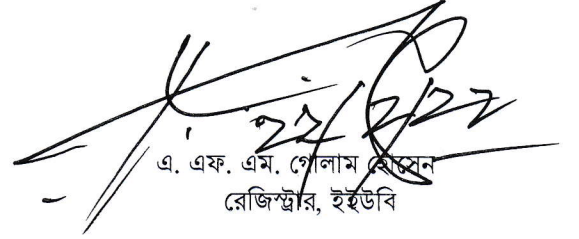 ২২/২/২২
এ. এফ. এম. গোলাম হোসেন
রেজিস্ট্রার, ইইউবি